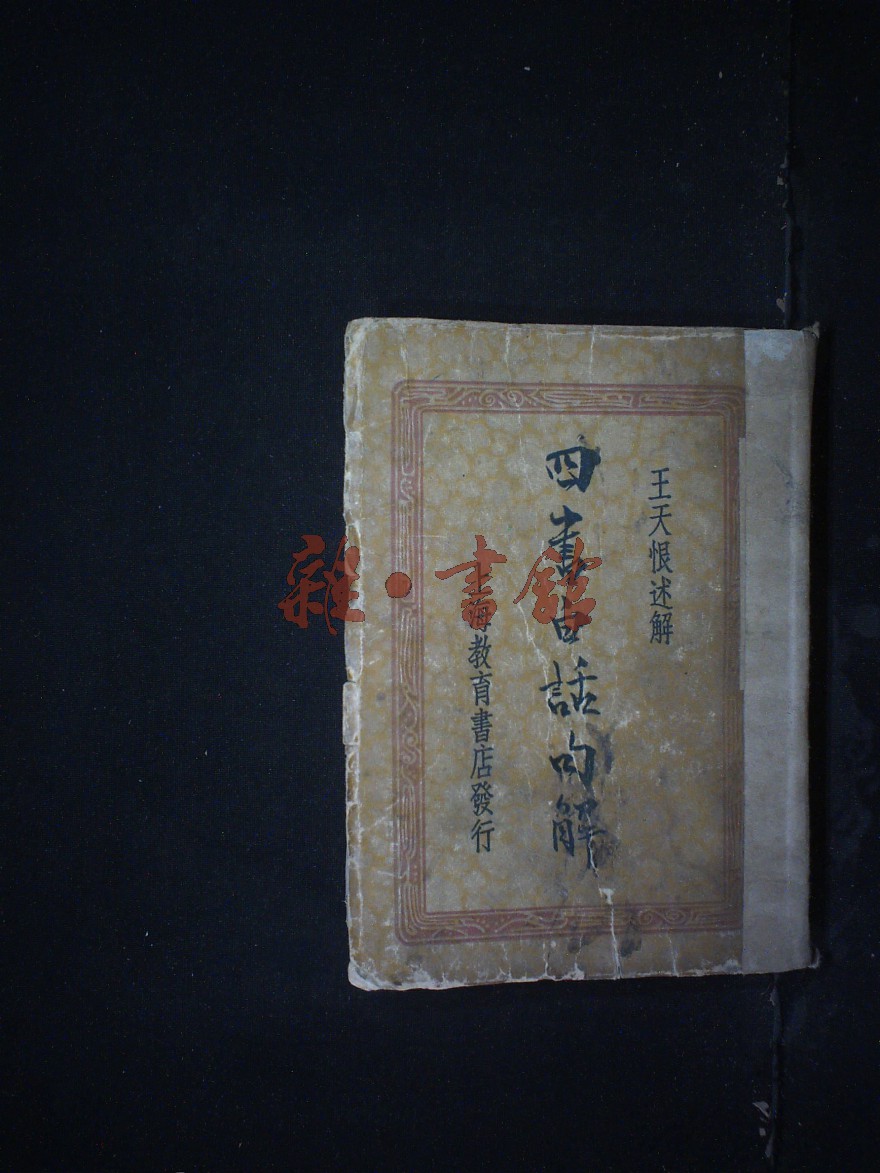 王天恨述解
四書白話句解
上海教育書店發行
雜·書館